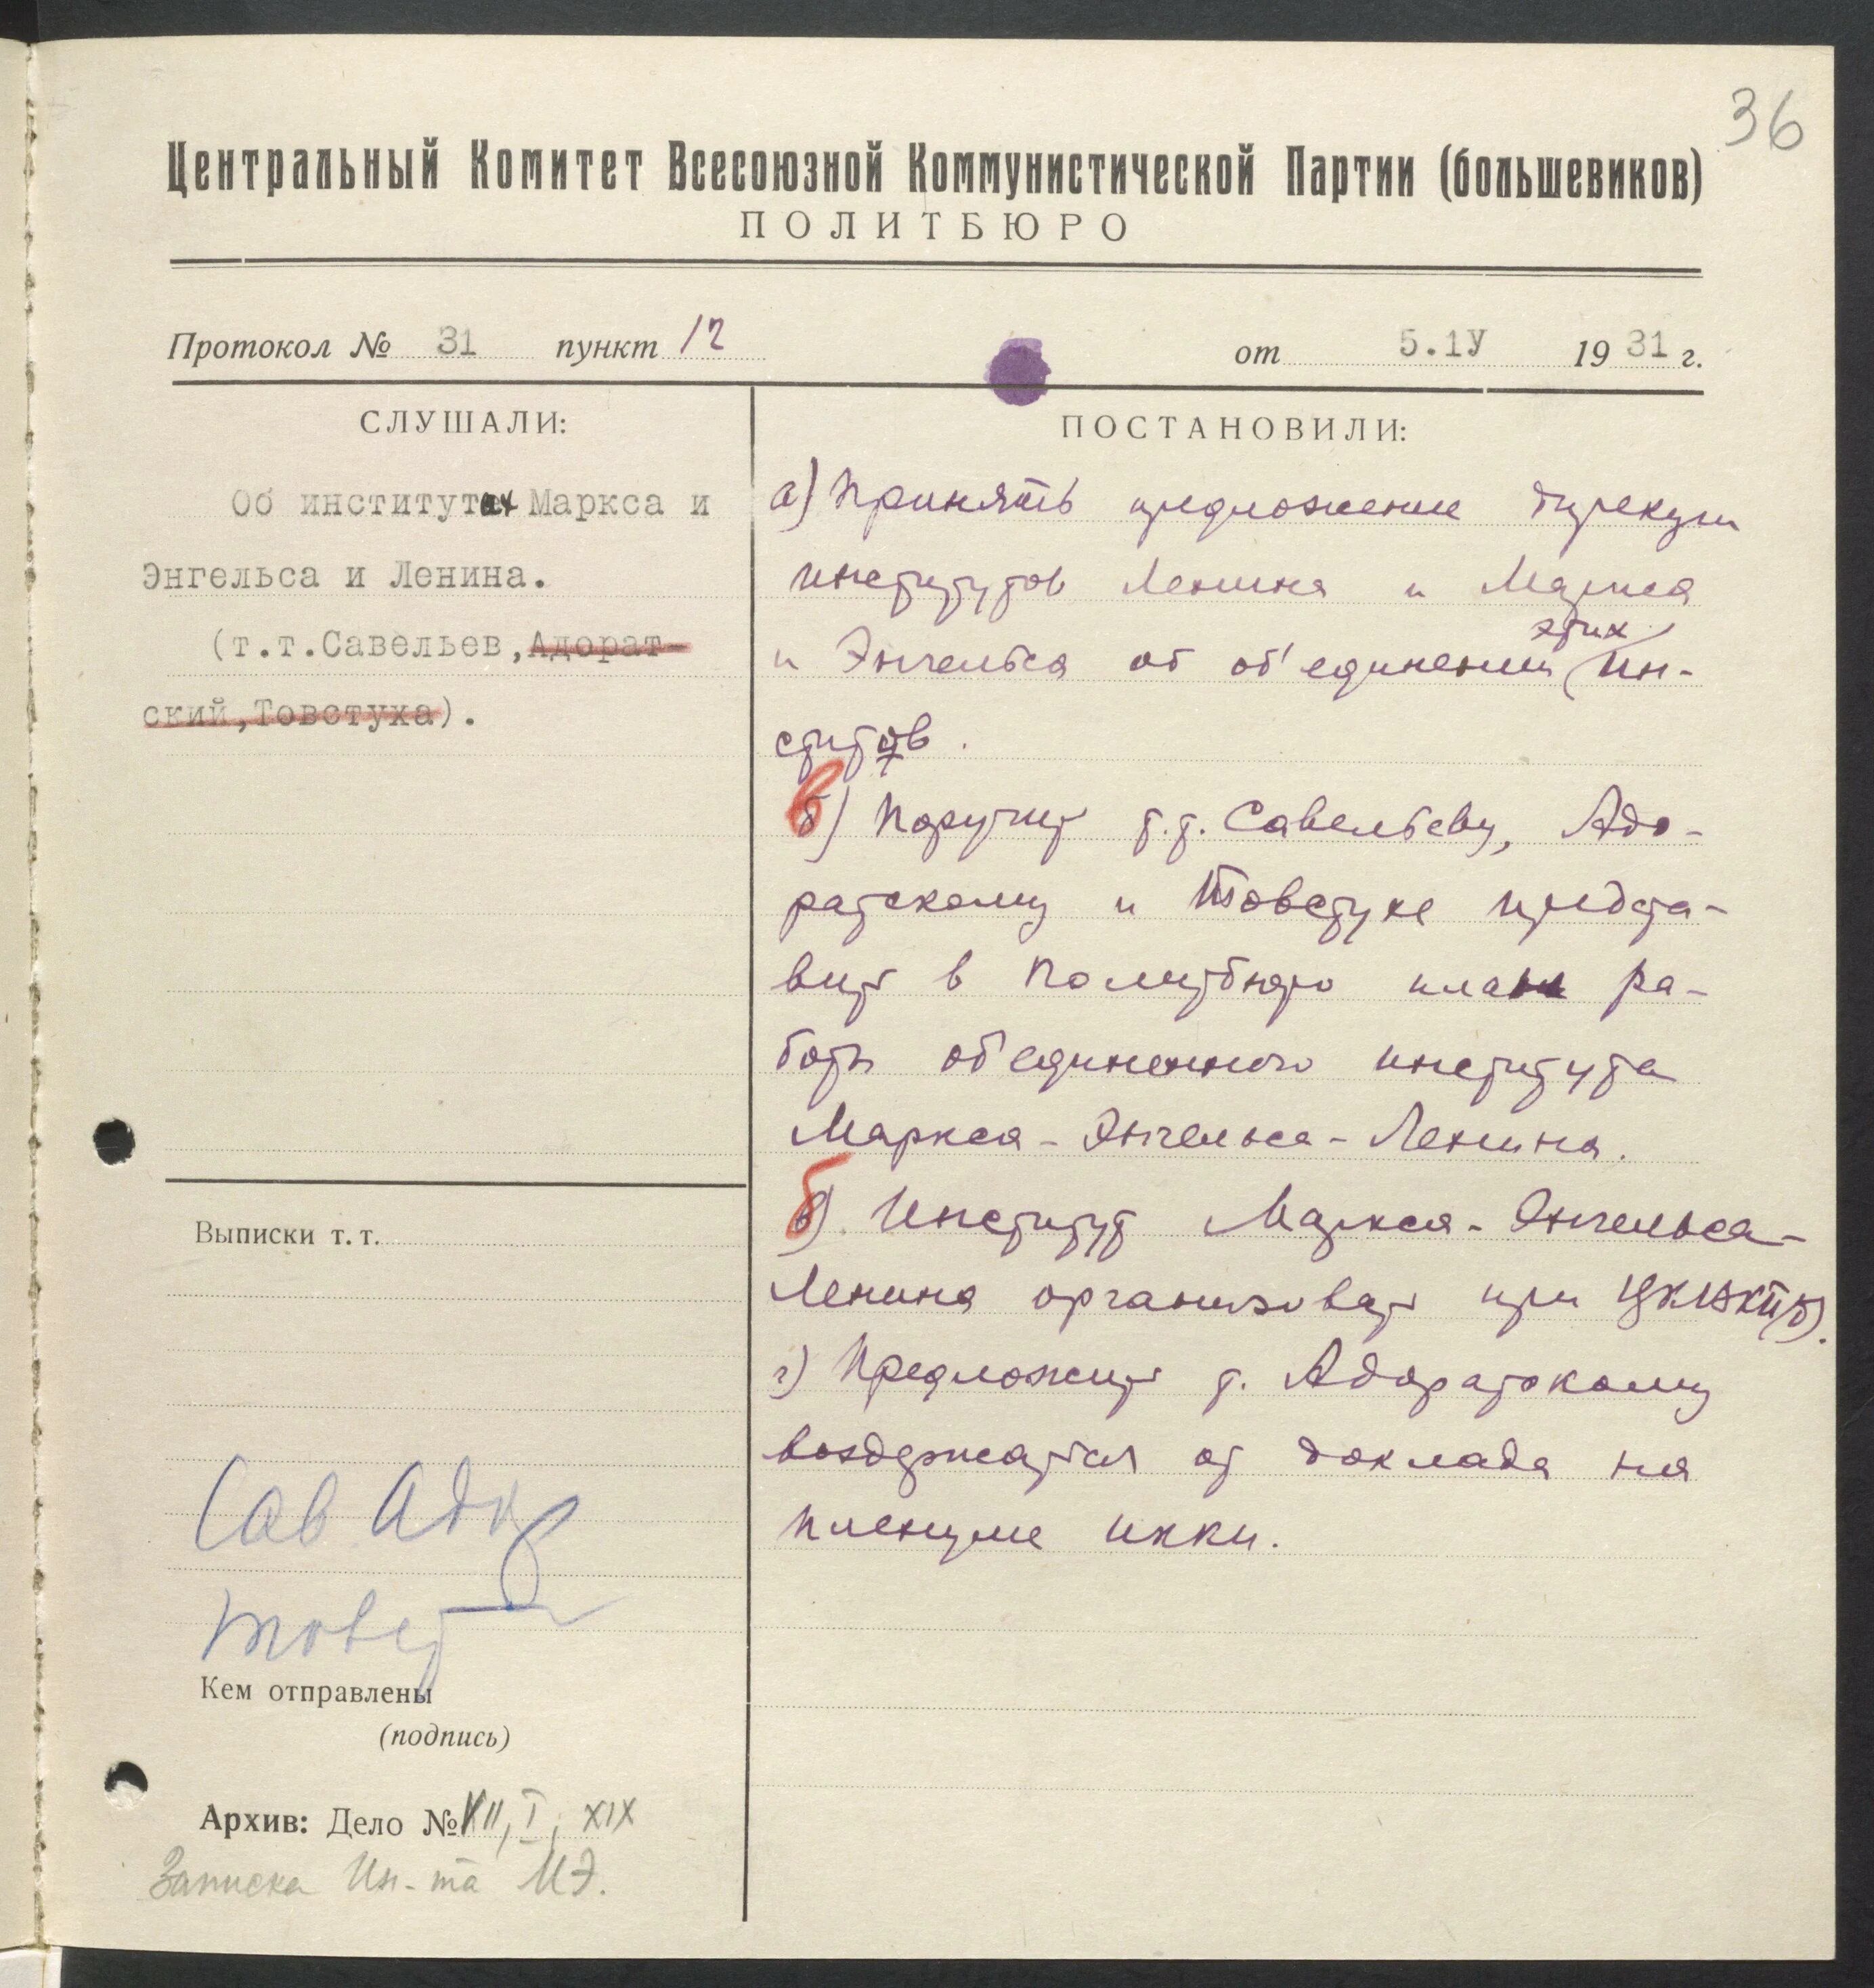 36
Центральный Комитет Всесоюзной Коммунистической Партии (большевиков)
ПОЛИТБЮРО
Протокол № 31 пункт 12 от 5.1У 1931 г.
СЛУШАЛИ:
Об институтах Маркса и
Энгельса и Ленина.
(т.т.Савельев,Адорат-
ский,Товстуха).
Выписки т. т.
Сав. Адор
Товст
Кем отправлены
(подпись)
Архив: Дело № XII, I, XIX
Записка Ин-та МЭ.
ПОСТАНОВИЛИ:
а) Принять предложение дирекции
институтов Ленина и Маркса
этих
и Энгельса об об'единении ин-
ститутов.
в) Поручить т.т. Савельеву, Адо-
ратскому и Товстухе предста-
вить в Политбюро план ра-
боты об'единенного института
Маркса-Энгельса-Ленина.
б) Институт Маркса-Энгельса-
Ленина организовать при ЦК ВКП(б).
г) Предложить т. Адоратскому
воздержаться от доклада на
пленуме ИККИ.